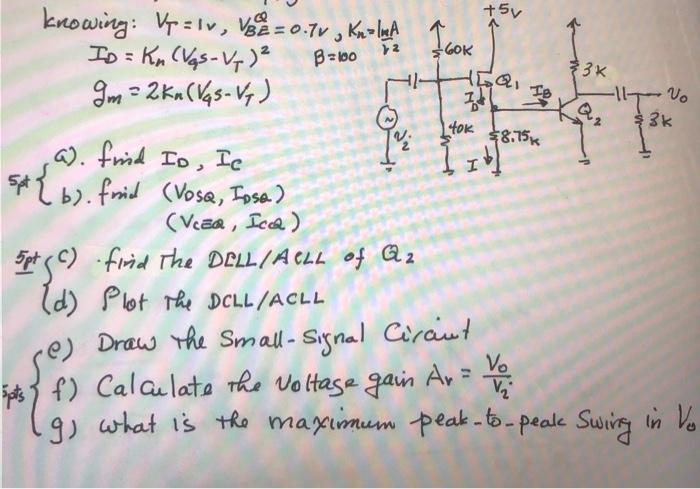 knowing: VT = 1v, VBE^Q = 0.7v, Kn = 1mA/v2
ID = Kn (VGS-VT)² β=100
gm = 2Kn(VGS-VT)
+5v
60K
3K
Q1
IB
ID
Vo
Q2
3K
vi
40K
8.75K
I
5pt a). find ID, IC
b). find (VDSQ, IDSQ)
(VCEQ, ICQ)
5pt c) .find The DCLL/ACLL of Q2
d) Plot The DCLL/ACLL
e) Draw the Small-Signal Circuit
5pts f) Calculate the Voltage gain Av = Vo/Vi
g) what is the maximum peak-to-peak Swing in Vo